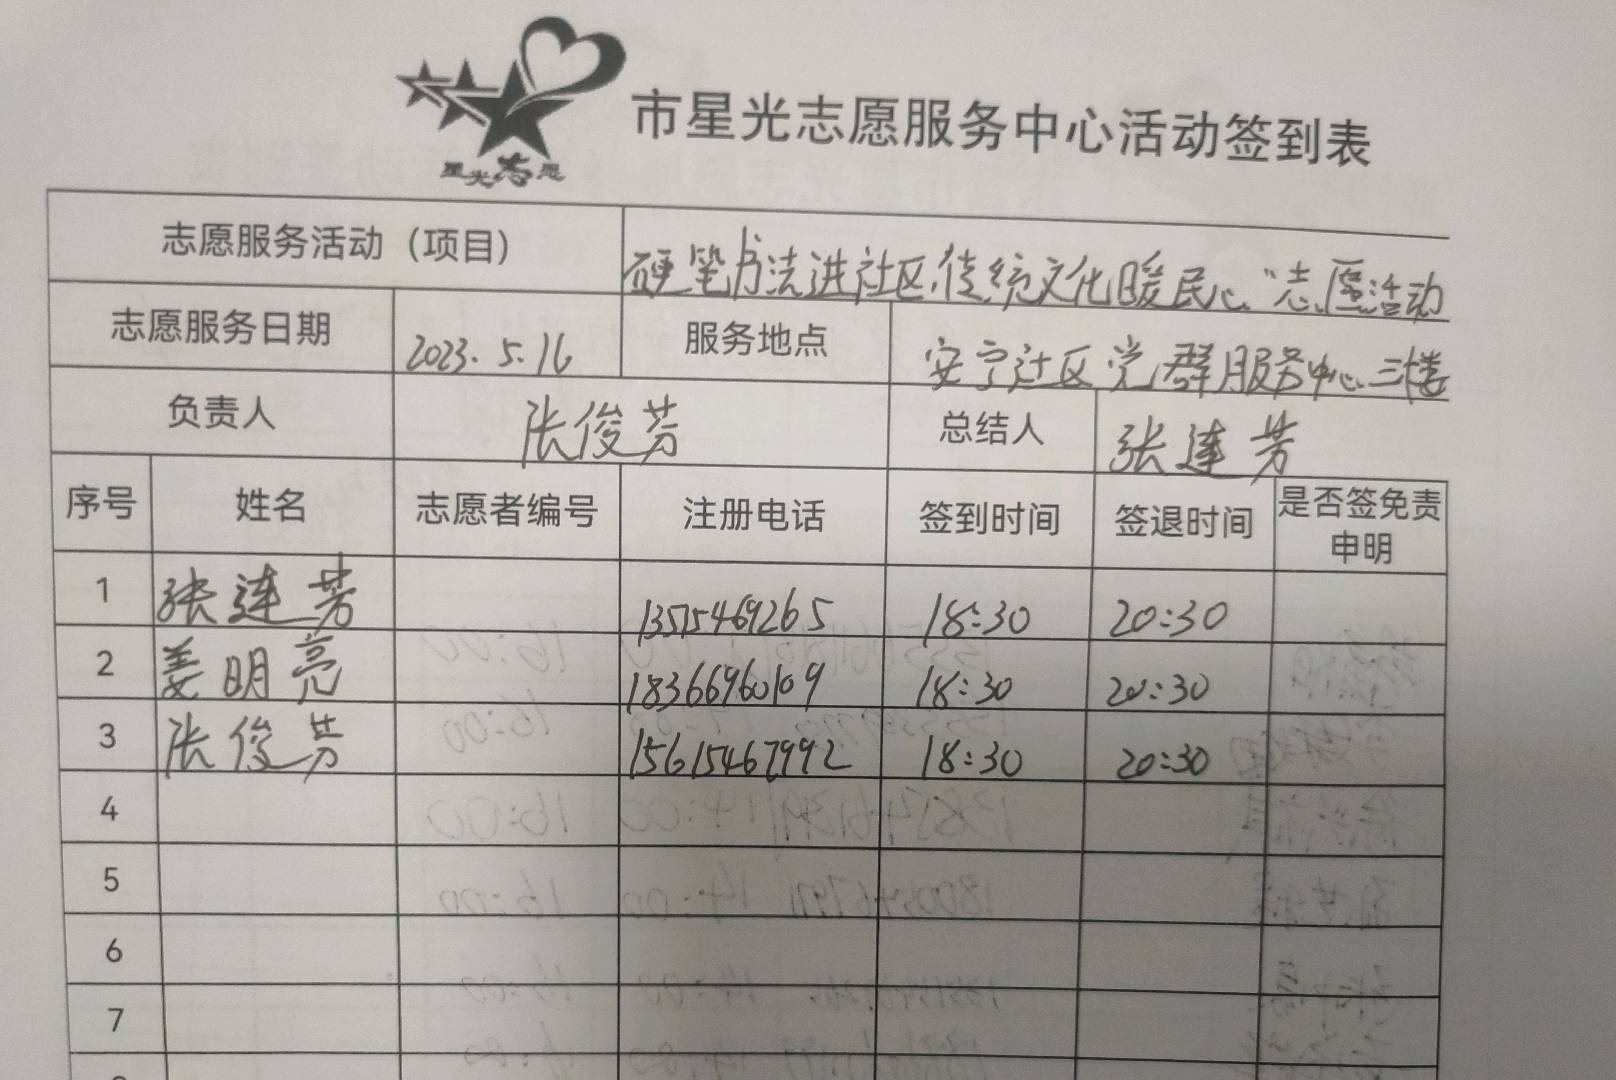 星光志愿
市星光志愿服务中心活动签到表
志愿服务活动（项目） 硬笔书法进社区,传统文化暖民心"志愿活动
志愿服务日期 2023.5.16 服务地点 安宁社区党群服务中心三楼
负责人 张俊芳 总结人 张连芳
序号 姓名 志愿者编号 注册电话 签到时间 签退时间 是否签免责申明
1 张连芳 13575469265 18:30 20:30
2 姜明亮 18366960109 18:30 20:30
3 张俊芳 15615467992 18:30 20:30
4
5
6
7